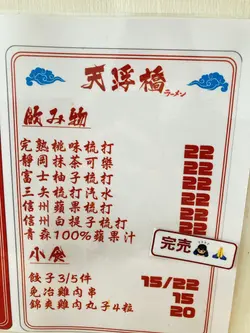 天浮橋
ラーメン
飲み物
完熟桃味梳打 22
靜岡抹茶可樂 22
富士柚子梳打 22
三矢梳打汽水 22
信州蘋果梳打 22
信州白提子梳打 22
青森100%蘋果汁
完売
小食
餃子3/5件 15/22
免治雞肉串 15
錦爽雞肉丸子4粒 20